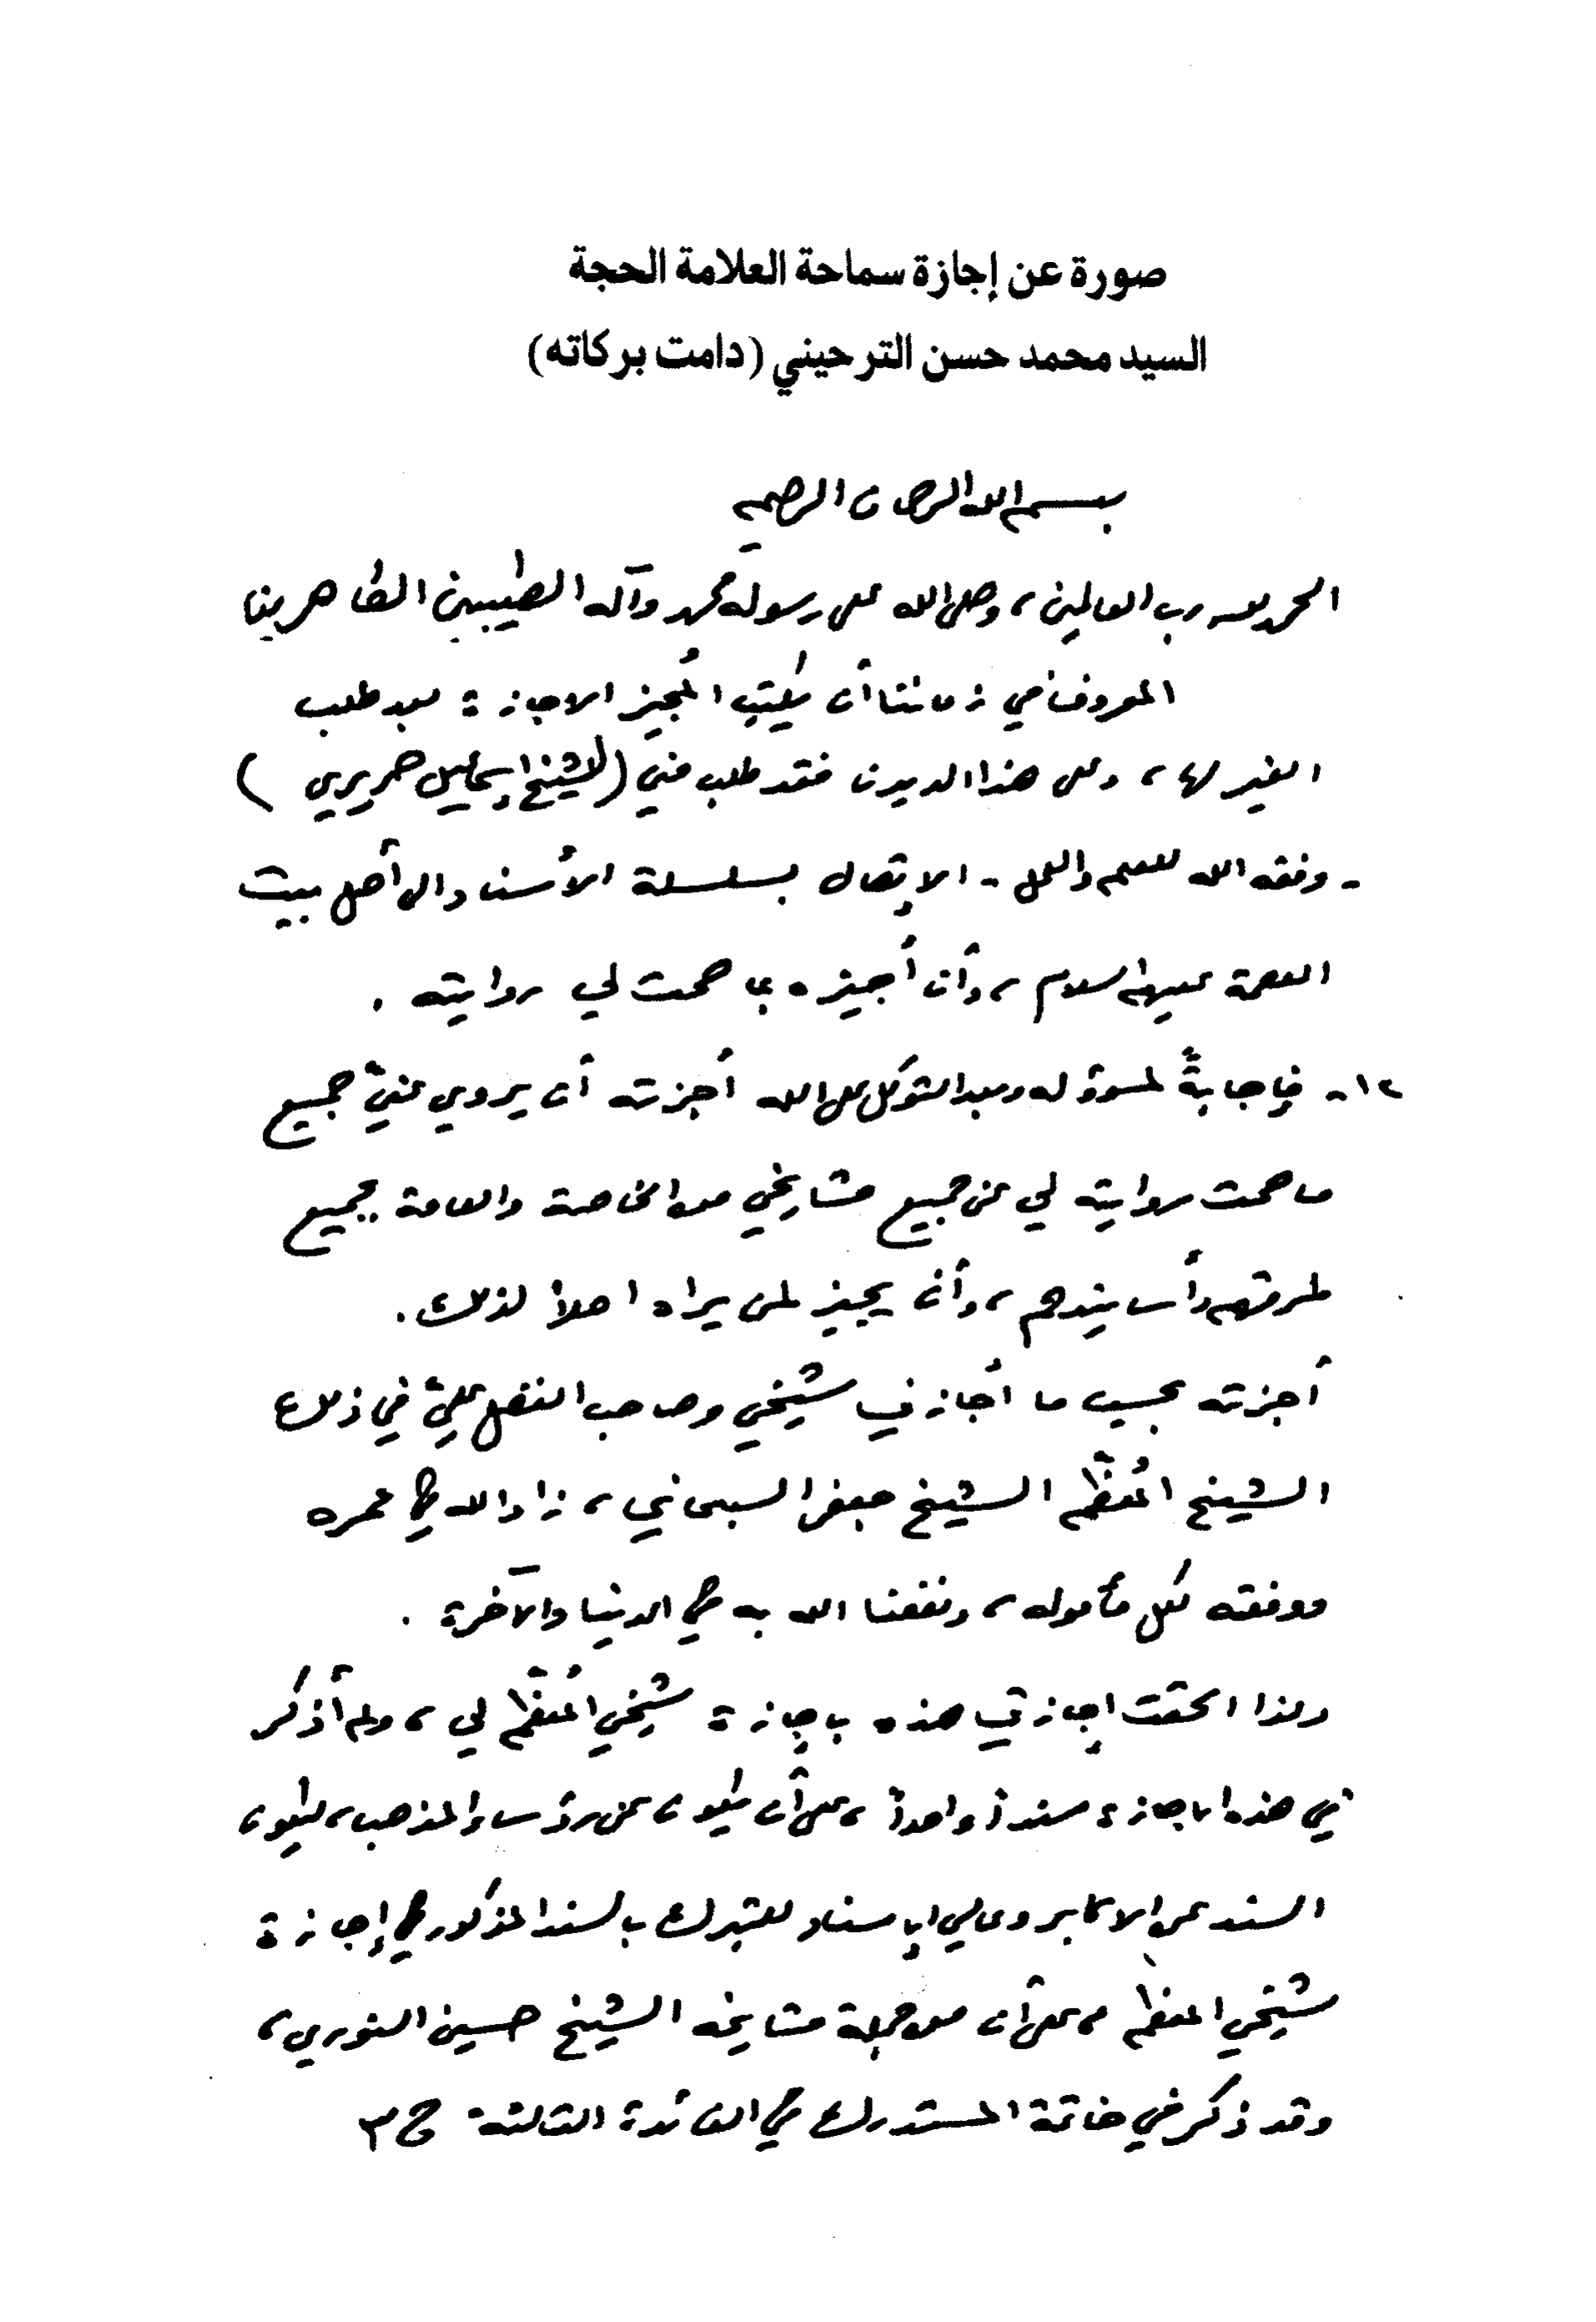 صورة عن إجازة سماحة العلامة الحجة
السيد محمد حسن الترحيني (دامت بركاته)
بسم الله الرحمان الرحيم
الحمد لله رب العالمين، وصلى الله على رسوله محمد وآله الطيبين الطاهرين
المعروف في زماننا أن يكتب المُجيز الاجازة بعد طلب
الغير لها، وعلى هذا الديدن فقد طلب مني (الشيخ إسماعيل حريري)
- وفقه الله للعلم والعمل - الإتصال بسلسلة الأسناد الى أهل بيت
العصمة عليهم السلام، وأن أجيزه بما صحت لي روايته.
١٢- فإجابةً لمسؤوله وبعد التوكل على الله أجزته أن يروي عنيّ جميع
ما صحت روايته لي عن جميع مشايخي من الخاصة والعامة بجميع
طرقهم وأسانيدهم، وأن يجيز لمن يراه اهلاً لذلك.
أجزته بحسب ما أجازني شيخي وصاحب الفضل عليّ في ذلك
الشيخ المُعظّم الشيخ جعفر السبحاني، زاد الله في عمره
ووفقه لكل مأموله، ونفعنا الله به في الدنيا والآخرة.
ولذا الحقت إجازتي هذه بإجازة شيخي المُعظّم لي، ولم أذكر
في هذه الاجازة سنداً واحداً، على أن يكون عن رؤساء المذهب، ليكون
السند عن الاكابر وعالي الإسناد للتبرك بالسند المذكور في إجازة
شيخي المعظم، على أن من جملة مشايخه الشيخ حسين النوري،
وقد ذكر في خاتمة المستدرك في الفائدة الثالثة ج٣